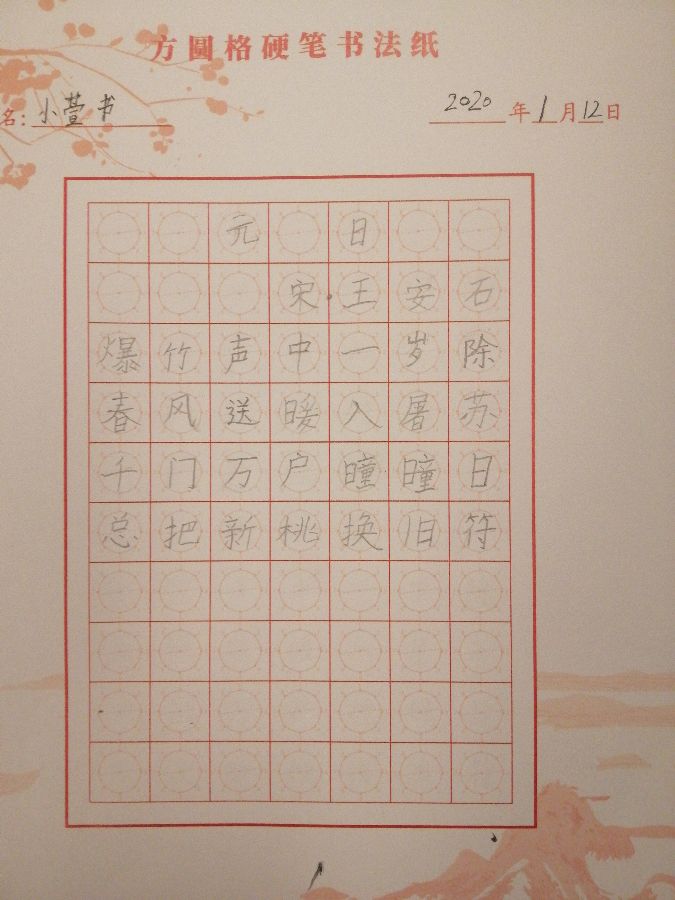 方圓格硬笔书法纸
名：小萱书 2020年1月12日
元日
宋·王安石
爆竹声中一岁除
春风送暖入屠苏
千门万户曈曈日
总把新桃换旧符